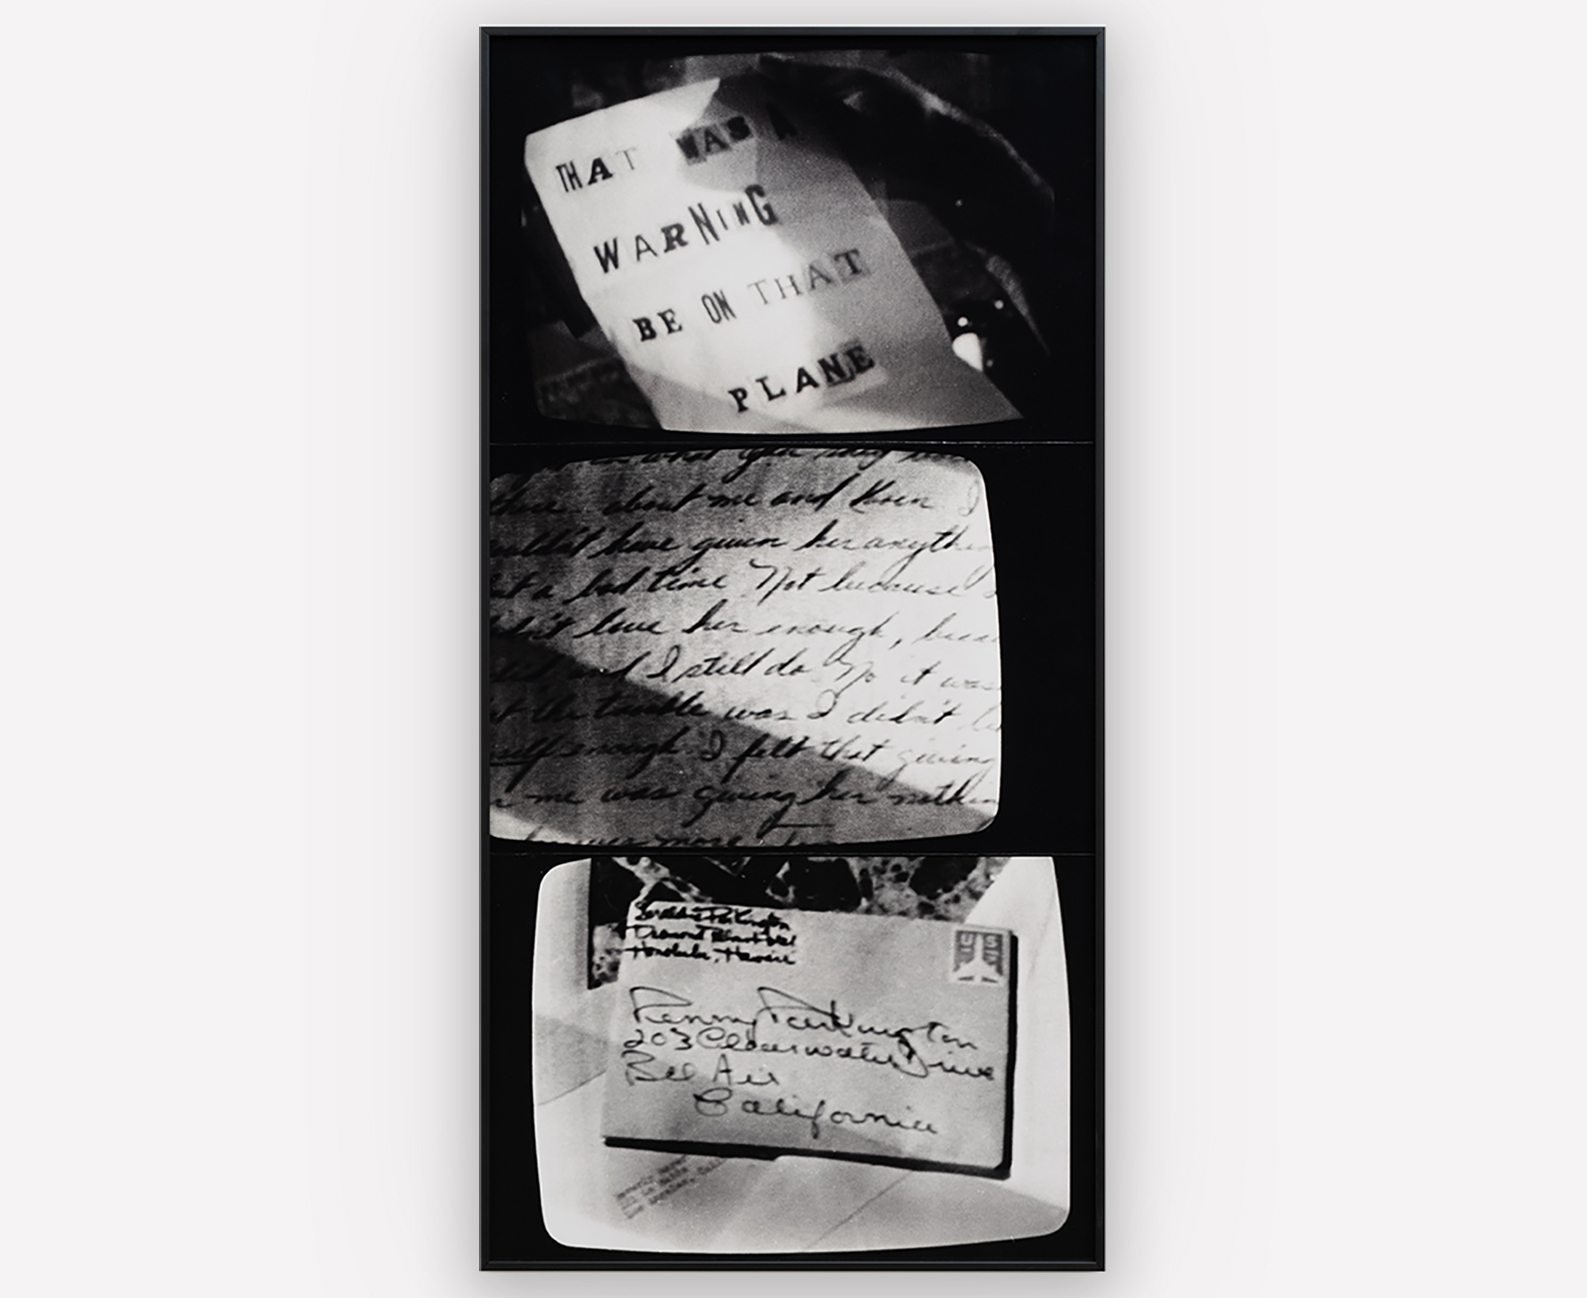 THAT WAS A
WARNING
BE ON THAT
PLANE
what you may
about me and Karen I
have given her anythin
a bad time Not because
love her enough, beca
and I still do No it was
the trouble was I didn't
enough. I felt that giving
me was giving her nothin
more
Parkington
Honolulu, Hawaii
US
Penny Parkington
203 Clearwater Drive
Bel Air
California